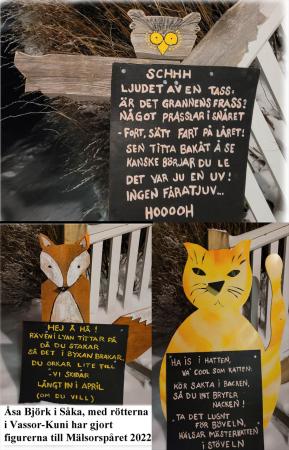 SCHHH
LJUDET AV EN TASS:
ÄR DET GRANNENS FRASS?
NÅGOT PRASSLAR I SNÅRET
- FORT, SÄTT FART PÅ LÅRET!
SEN TITTA BAKÅT Å SE
KANSKE BÖRJAR DU LE
DET VAR JU EN UV!
INGEN FÅRATJUV...
HOOOOH
HEJ Å HÅ!
RÄVEN I LYAN TITTAR PÅ
DÅ DU STAKAR
SÅ DET I BYXAN BRAKAR.
DU ORKAR LITE TILL
- VI SKIDAR
LÅNGT IN I APRIL
(OM DU VILL)
HA IS I HATTEN,
VA' COOL SOM KATTEN:
KÖR SAKTA I BACKEN,
SÅ DU INT BRYTER
NACKEN!
TA DET LUGNT
FÖR BÖVELN,
HÄLSAR MÄSTERKATTEN
I STÖVELN
Åsa Björk i Såka, med rötterna
i Vassor-Kuni har gjort
figurerna till Mälsorspåret 2022